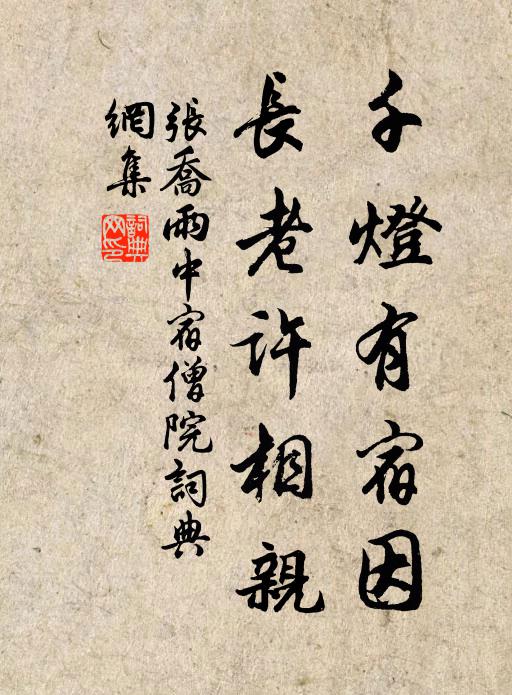 千燈有宿因
長老許相親
張喬雨中宿僧院詞典
網集
詞典網印